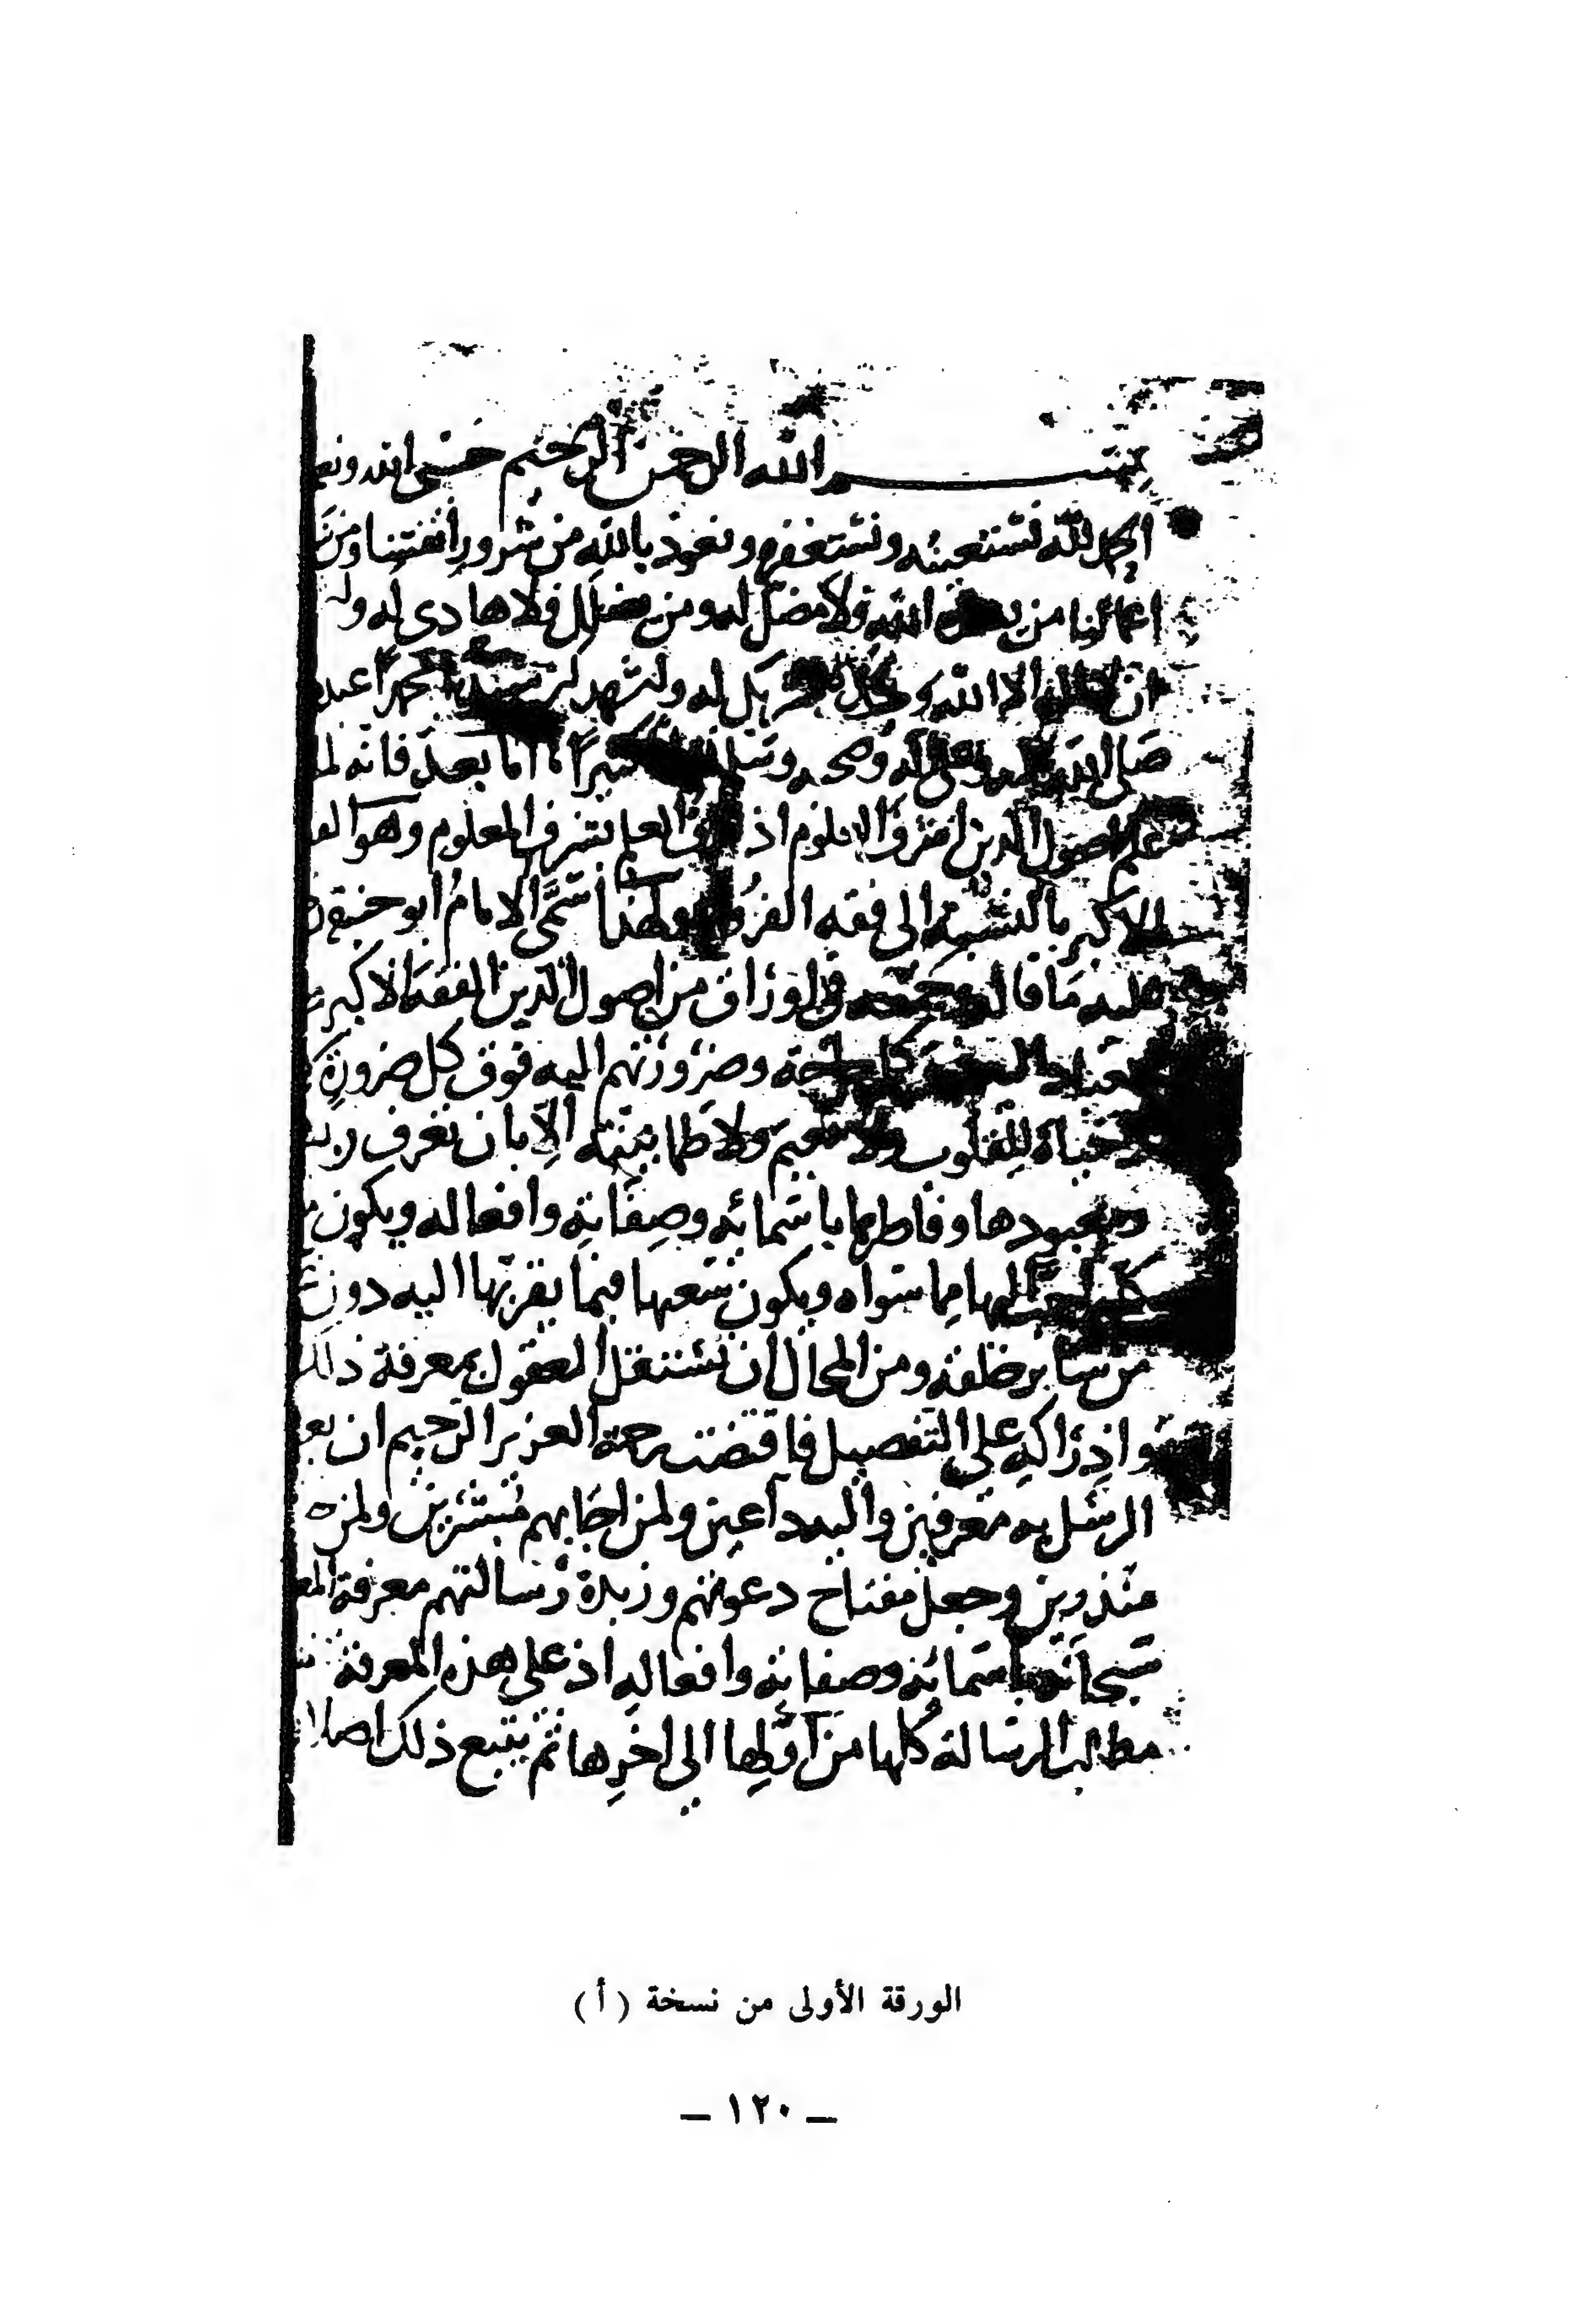 بسم الله الرحمن الرحيم حسبي الله ونع
الحمد لله نستعينه ونستغفره ونعوذ بالله من شرور انفسنا ومن
اعمالنا من الله فلا مضل له ومن يضلل فلا هادي له
ان الا الله له ونشهد محمدا عبده
صلى الله عليه وعلى آله وصحبه وسلم كثيرا اما بعد فانه لما
علم اصول الدين اشرف العلوم اذ شرف العلم بشرف المعلوم وهو الفقه
الاكبر بالنسبة الى فقه الفروع ولهذا سمى الامام ابو حنيفة
عليه ما قاله وجمعه في اوراق من اصول الدين الفقه الاكبر
كل حاجة وضرورتهم اليه فوق كل ضرورة
حياة للقلوب ولا نعيم ولا طمانينة الا بان تعرف ربها
ومعبودها وفاطرها باسمائه وصفاته وافعاله ويكون
احب اليها مما سواه ويكون سعيها فيما يقربها اليه دون
من سائر خلقه ومن المحال ان تستقل العقول بمعرفة ذلك
وادراكه على التفصيل فاقتضت رحمة العزيز الرحيم ان بعث
الرسل به معرفين واليه داعين ولمن اجابهم مبشرين ولمن
منذرين وجعل مفتاح دعوتهم وزبدة رسالتهم معرفة
سبحانه باسمائه وصفاته وافعاله اذ على هذه المعرفة
مطالب الرسالة كلها من اولها الى اخرها ثم يتبع ذلك اصلا
الورقة الأولى من نسخة (أ)
– ١٢٠ –